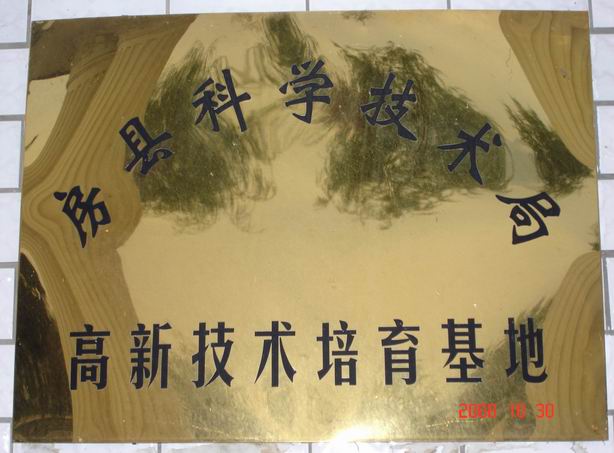 房县科学技术局
高新技术培育基地
2008 10 30